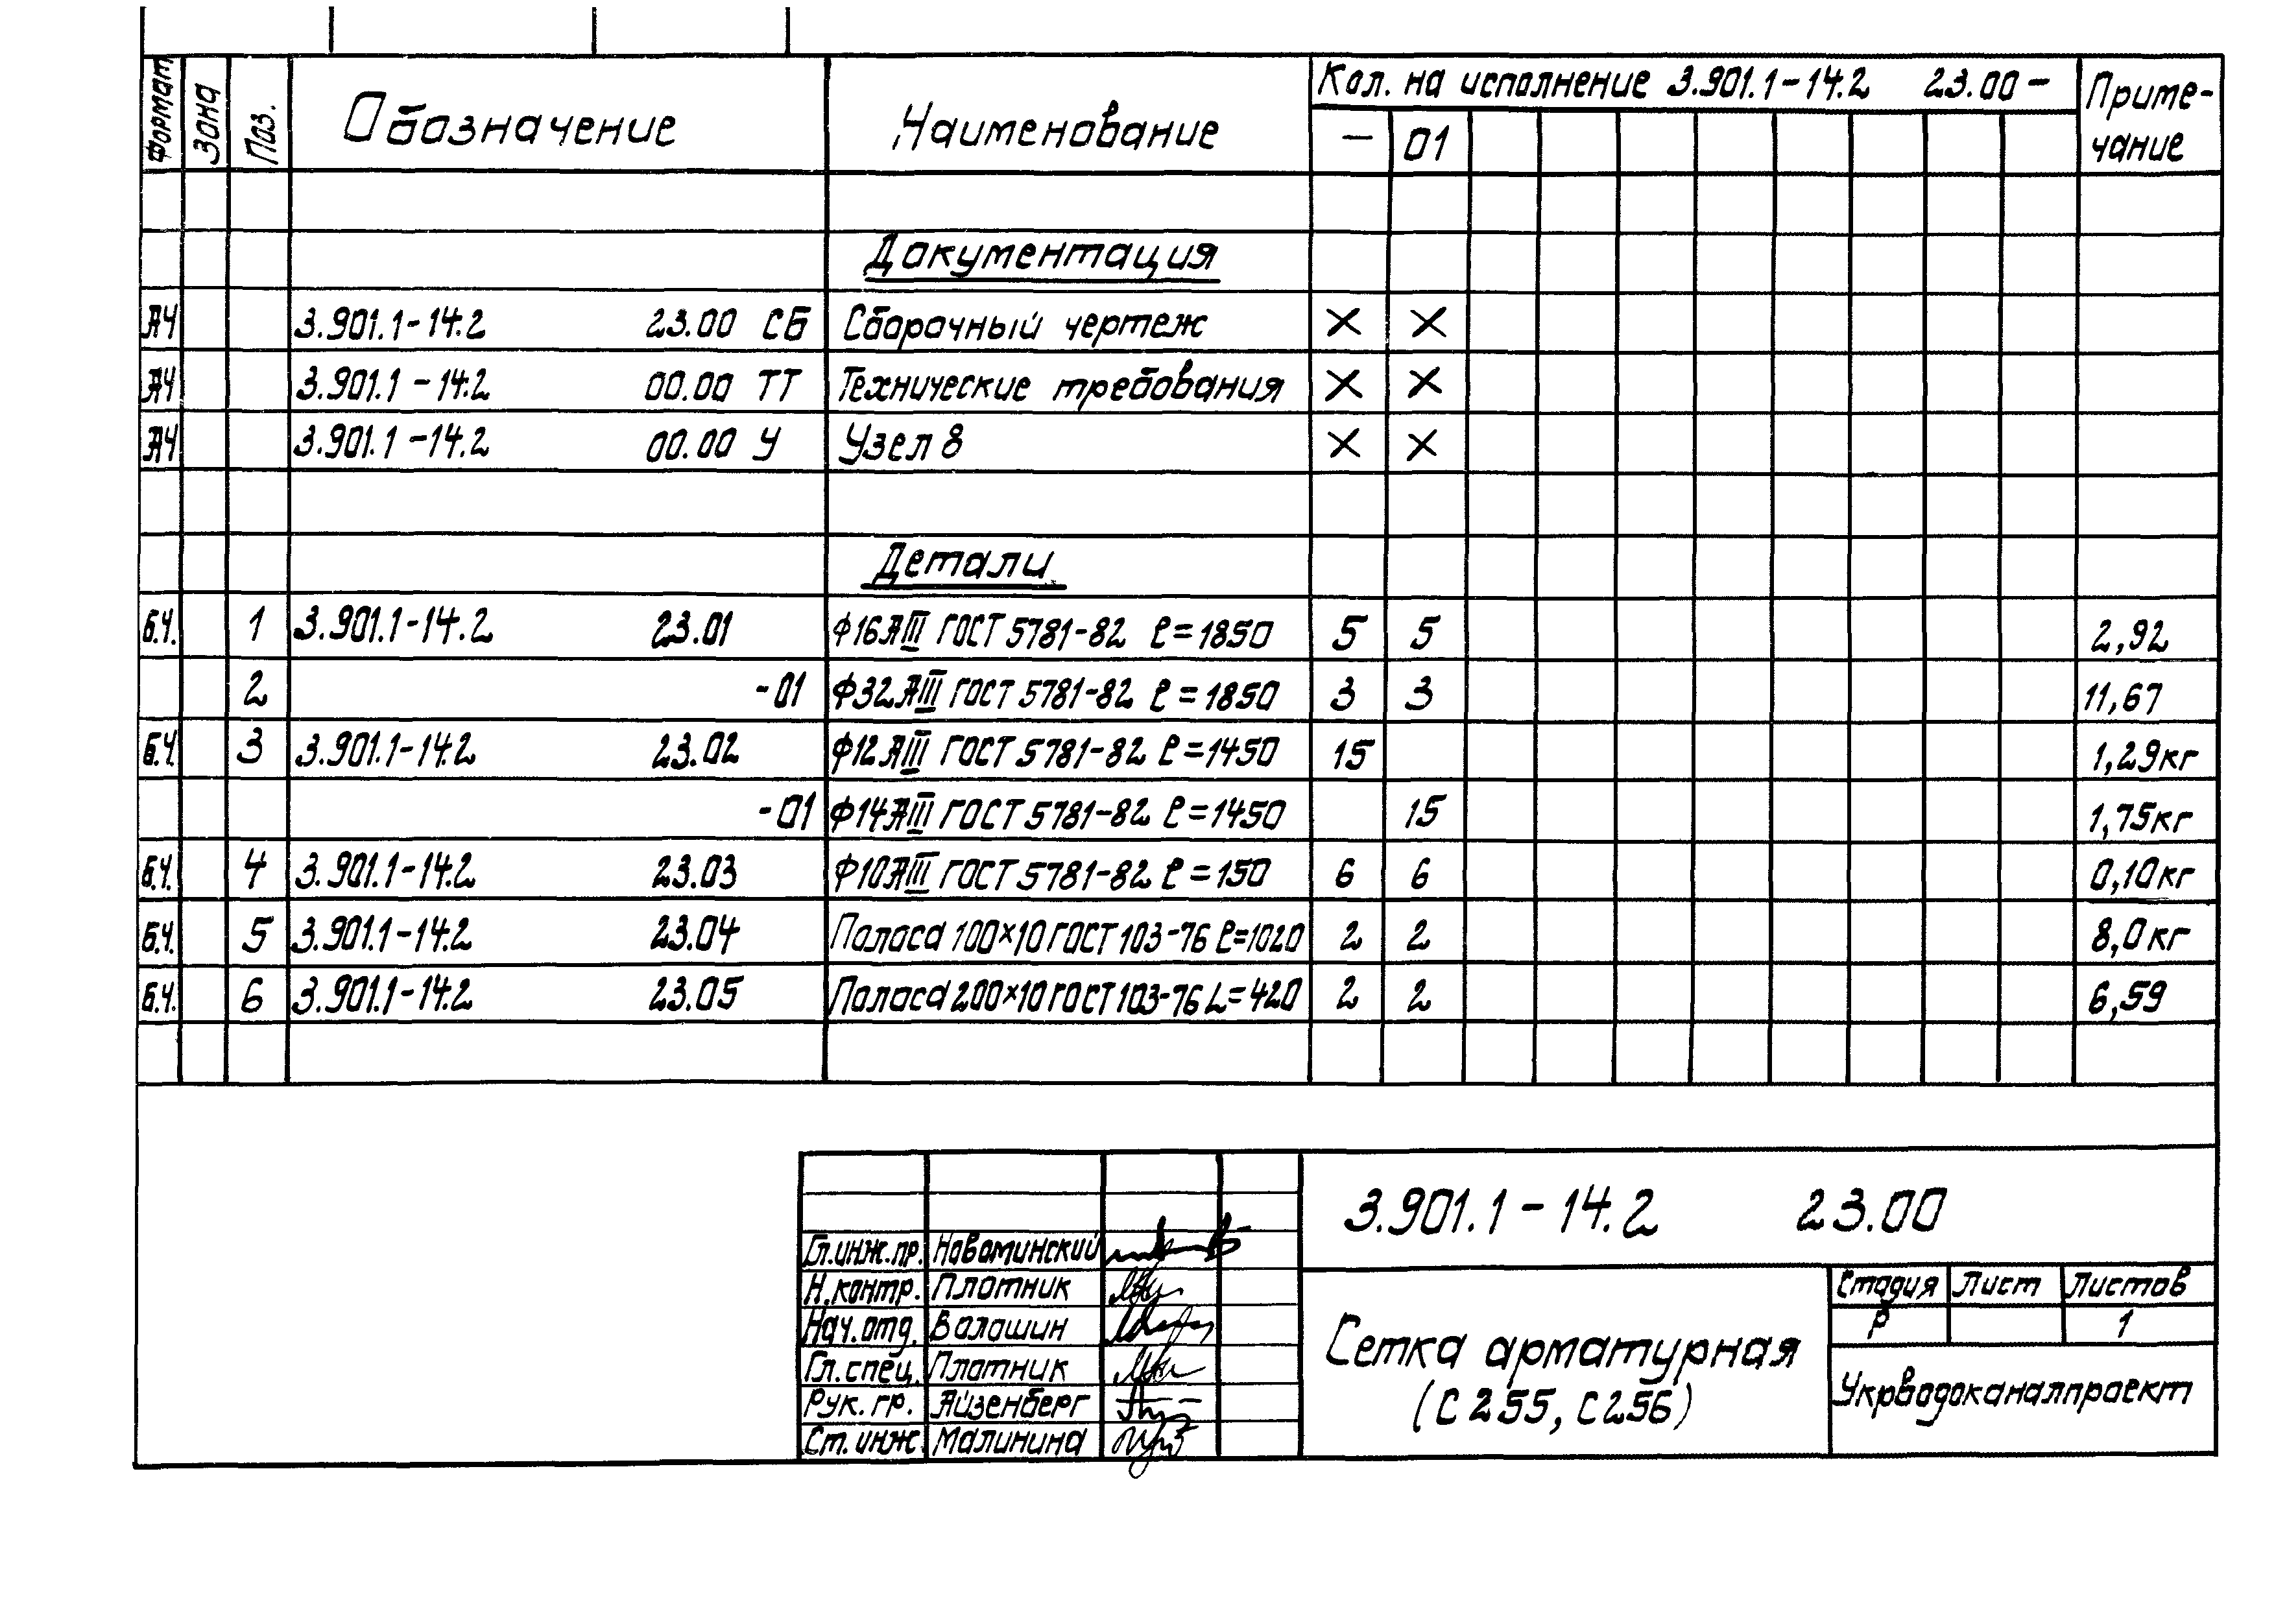 Формат Зона Поз. Обозначение Наименование Кол. на исполнение 3.901.1-14.2 23.00- Приме-
чание
- 01
Документация
А4 3.901.1-14.2 23.00 СБ Сборочный чертеж × ×
А4 3.901.1-14.2 00.00 ТТ Технические требования × ×
А4 3.901.1-14.2 00.00 У Узел 8 × ×
Детали
Б.Ч. 1 3.901.1-14.2 23.01 Ф16АIII ГОСТ 5781-82 ℓ=1850 5 5 2,92
2 -01 Ф32АIII ГОСТ 5781-82 ℓ=1850 3 3 11,67
Б.Ч. 3 3.901.1-14.2 23.02 Ф12АIII ГОСТ 5781-82 ℓ=1450 15 1,29кг
-01 Ф14АIII ГОСТ 5781-82 ℓ=1450 15 1,75кг
Б.Ч. 4 3.901.1-14.2 23.03 Ф10АIII ГОСТ 5781-82 ℓ=150 6 6 0,10кг
Б.Ч. 5 3.901.1-14.2 23.04 Полоса 100×10 ГОСТ 103-76 ℓ=1020 2 2 8,0кг
Б.Ч. 6 3.901.1-14.2 23.05 Полоса 200×10 ГОСТ 103-76 L=420 2 2 6,59
3.901.1-14.2 23.00
Гл.инж.пр. Новоминский
Н.контр. Плотник
Нач.отд. Волошин
Гл.спец. Плотник
Рук.гр. Айзенберг
Ст.инж Малинина
Сетка арматурная
(С255, С256)
Стадия Лист Листов
Р 1
Укрводоканалпроект